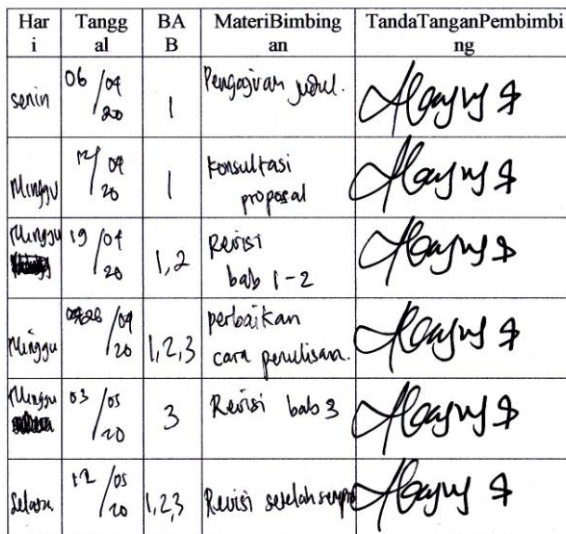 Har Tangg BA MateriBimbing TandaTanganPembimbi
i al B an ng
senin 06/04 1 Pengajuan judul.
20
Minggu 12/04 1 Konsultasi
20 proposal
Minggu 19/04 1,2 Revisi
20 bab 1-2
Minggu /04 1,2,3 perbaikan
20 cara penulisan.
Minggu 03/05 3 Revisi bab 3
20
Selasa 12/05 1,2,3 Revisi setelah sempro
20